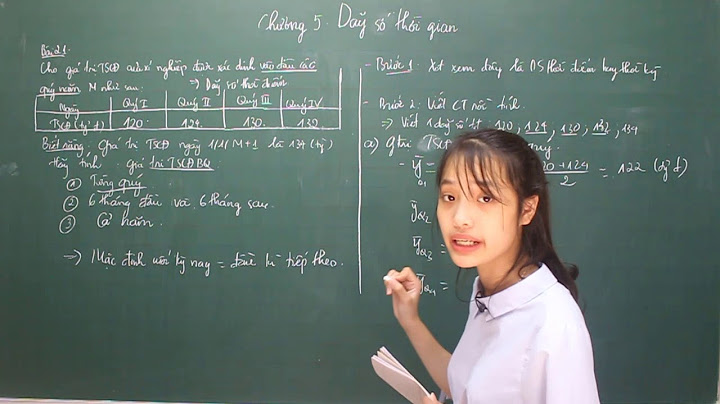 Chương 5. Dãy số thời gian
Bài 21
Cho giá trị TSCĐ của xí nghiệp được xác định vào đầu các
quý năm M như sau: => Dãy số thời điểm
Ngày Quý I Quý II Quý III Quý IV
TSCĐ (tỷ đ) 120 124 130 132
Biết rằng: Giá trị TSCĐ ngày 1/1/M+1 là 134 (tỷ)
Hãy tính: giá trị TSCĐ BQ
1 Từng quý
2 6 tháng đầu và 6 tháng sau
3 Cả năm.
=> Mặc định cuối kỳ này = đầu kì tiếp theo.
- Bước 1: Xét xem dãy là DS thời điểm hay thời kỳ
- Bước 2: Viết CT rồi tính.
=> Viết 1 dãy số lt: 120, 124, 130, 132, 134
a) Gtrị TSCĐ quý.
- ȳQ1 = 20+124 / 2 = 122 (tỷ đ)
ȳQ2
ȳQ3 =
ȳQ4 =